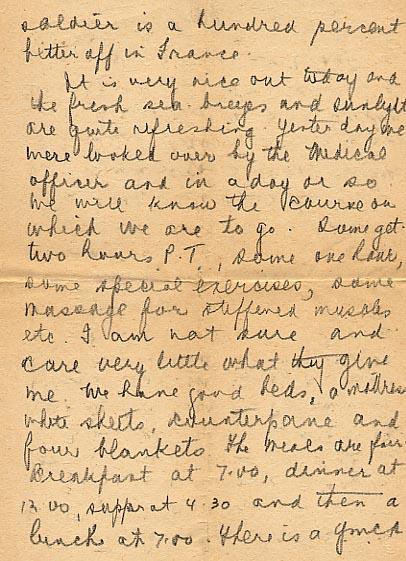 soldier is a hundred percent
better off in France.
It is very nice out today and
the fresh sea breezes and sunlight
are quite refreshing. Yesterday we
were looked over by the Medical
officer and in a day or so
we will know the course on
which we are to go. Some get
two hours P.T., some one hour,
some special exercises, some
massage for stiffened muscles
etc. I am not sure and
care very little what they give
me. We have good beds, a mattress
white sheets, counterpane and
four blankets. The meals are fair
Breakfast at 7.00, dinner at
12.00, supper at 4.30 and then a
lunch at 7.00. There is a YMCA